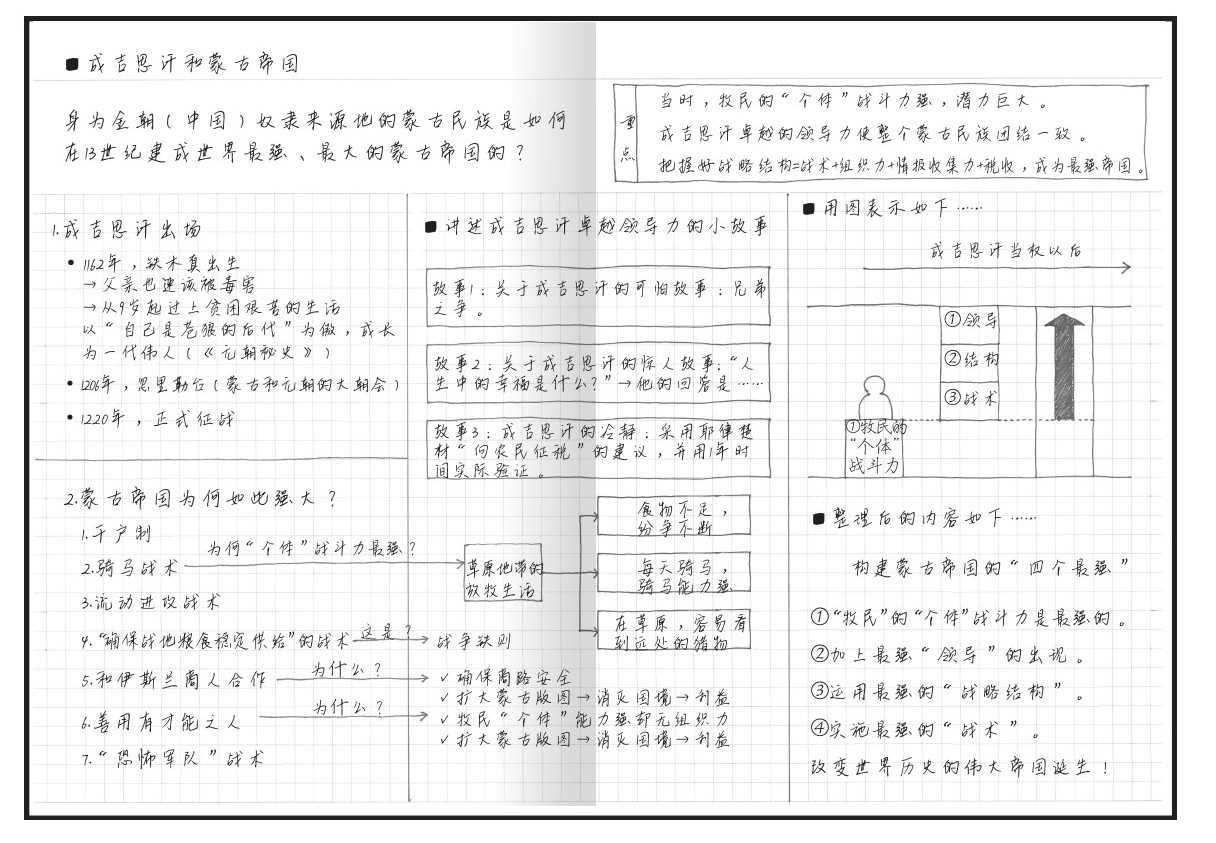 ■成吉思汗和蒙古帝国
身为金朝(中国)奴隶来源地的蒙古民族是如何
在13世纪建成世界最强、最大的蒙古帝国的?
重点
当时,牧民的“个体”战斗力强,潜力巨大。
成吉思汗卓越的领导力使整个蒙古民族团结一致。
把握好战略结构=战术+组织力+情报收集力+税收,成为最强帝国。
1.成吉思汗出场
•1162年,铁木真出生
→父亲也速该被毒害
→从9岁起过上贫困艰苦的生活
以“自己是苍狼的后代”为傲,成长
为一代伟人(《元朝秘史》)
•1206年,忽里勒台(蒙古和元朝的大朝会)
•1220年,正式征战
2.蒙古帝国为何如此强大?
1.千户制
为何“个体”战斗力最强?
2.骑马战术
3.流动进攻战术
4.“确保战地粮食稳定供给”的战术
这是?
战争铁则
5.和伊斯兰商人合作
为什么?
6.善用有才能之人
为什么?
7.“恐怖军队”战术
■讲述成吉思汗卓越领导力的小故事
故事1:关于成吉思汗的可怕故事:兄弟
之争。
故事2:关于成吉思汗的惊人故事:“人
生中的幸福是什么?”→他的回答是……
故事3:成吉思汗的冷静:采用耶律楚
材“向农民征税”的建议,并用1年时
间实际验证。
草原地带的
放牧生活
食物不足,
纷争不断
每天骑马,
骑马能力强
在草原,容易看
到远处的猎物
✓确保商路安全
✓扩大蒙古版图→消灭国境→利益
✓牧民“个体”能力强却无组织力
✓扩大蒙古版图→消灭国境→利益
■用图表示如下……
成吉思汗当权以后
①领导
②结构
③战术
①牧民的
“个体”
战斗力
■整理后的内容如下……
构建蒙古帝国的“四个最强”
①“牧民”的“个体”战斗力是最强的。
②加上最强“领导”的出现。
③运用最强的“战略结构”。
④实施最强的“战术”。
改变世界历史的伟大帝国诞生!